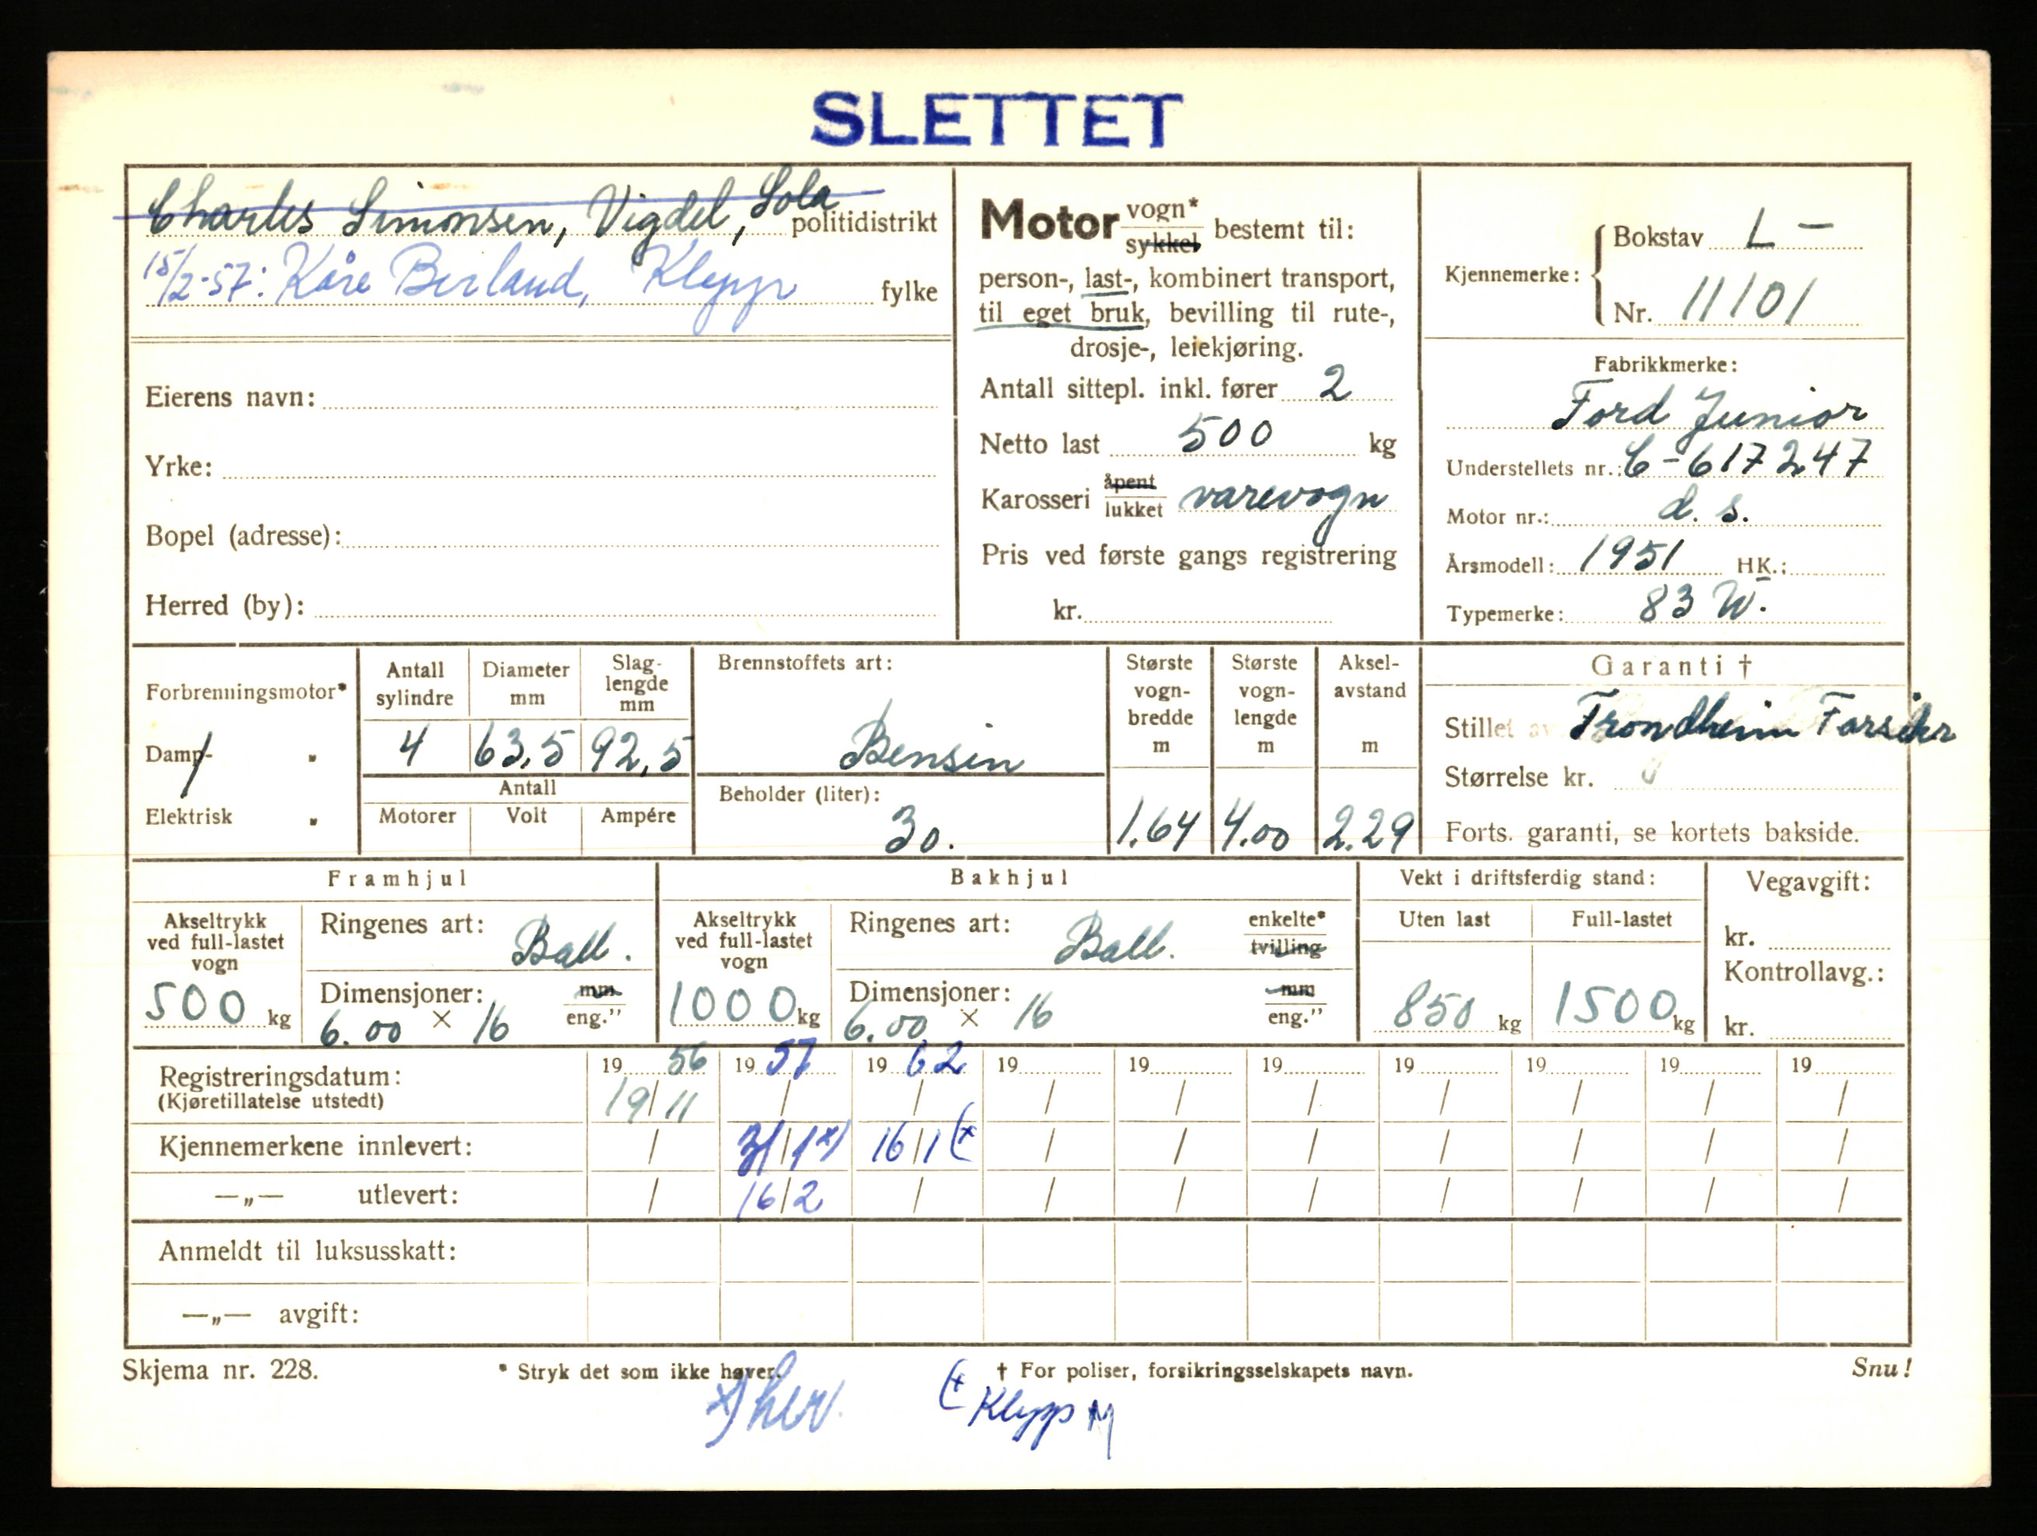 SLETTET
Charles Simonsen, Vigdel, Sola politidistrikt
15/2-57: Kåre Berland, Klepp fylke
Eierens navn:
Yrke:
Bopel (adresse):
Herred (by):
Motor vogn* sykkel bestemt til:
person-, last-, kombinert transport,
til eget bruk, bevilling til rute-,
drosje-, leiekjøring.
Antall sittepl. inkl. fører 2
Netto last 500 kg
Karosseri åpent lukket varevogn
Pris ved første gangs registrering
kr.
Kjennemerke: Bokstav L -
Nr. 11101
Fabrikkmerke:
Ford Junior
Understellets nr.: C-617247
Motor nr.: d. s.
Årsmodell: 1951 HK.:
Typemerke: 83 W.
Forbrenningsmotor*
Damp- "
Elektrisk "
Antall sylindre 4
Diameter mm 63,5
Slag-lengde mm 92,5
Antall
Motorer Volt Ampére
Brennstoffets art:
Bensin
Beholder (liter):
30.
Største vogn-bredde m 1.64
Største vogn-lengde m 4.00
Aksel-avstand m 2.29
Garanti †
Stillet av Trondheim Forsikr
Størrelse kr.
Forts. garanti, se kortets bakside.
Framhjul
Akseltrykk ved full-lastet vogn
500 kg
Ringenes art: Ball.
Dimensjoner: mm eng."
6.00 × 16
Bakhjul
Akseltrykk ved full-lastet vogn
1000 kg
Ringenes art: Ball. enkelte* tvilling
Dimensjoner: mm eng."
6.00 × 16
Vekt i driftsferdig stand:
Uten last Full-lastet
850 kg 1500 kg
Vegavgift:
kr.
Kontrollavg.:
kr.
Registreringsdatum: 19 56 19 57 19 62 19 19 19 19 19 19 19
(Kjøretillatelse utstedt) 19/11 / / / / / / / / /
Kjennemerkene innlevert: / 31/1 x) 16/1 (x / / / / / / /
—„— utlevert: / 16/2 / / / / / / / /
Anmeldt til luksusskatt:
—„— avgift:
Skjema nr. 228. * Stryk det som ikke høver. † For poliser, forsikringsselskapets navn. Snu!
x) her. (x Klepp